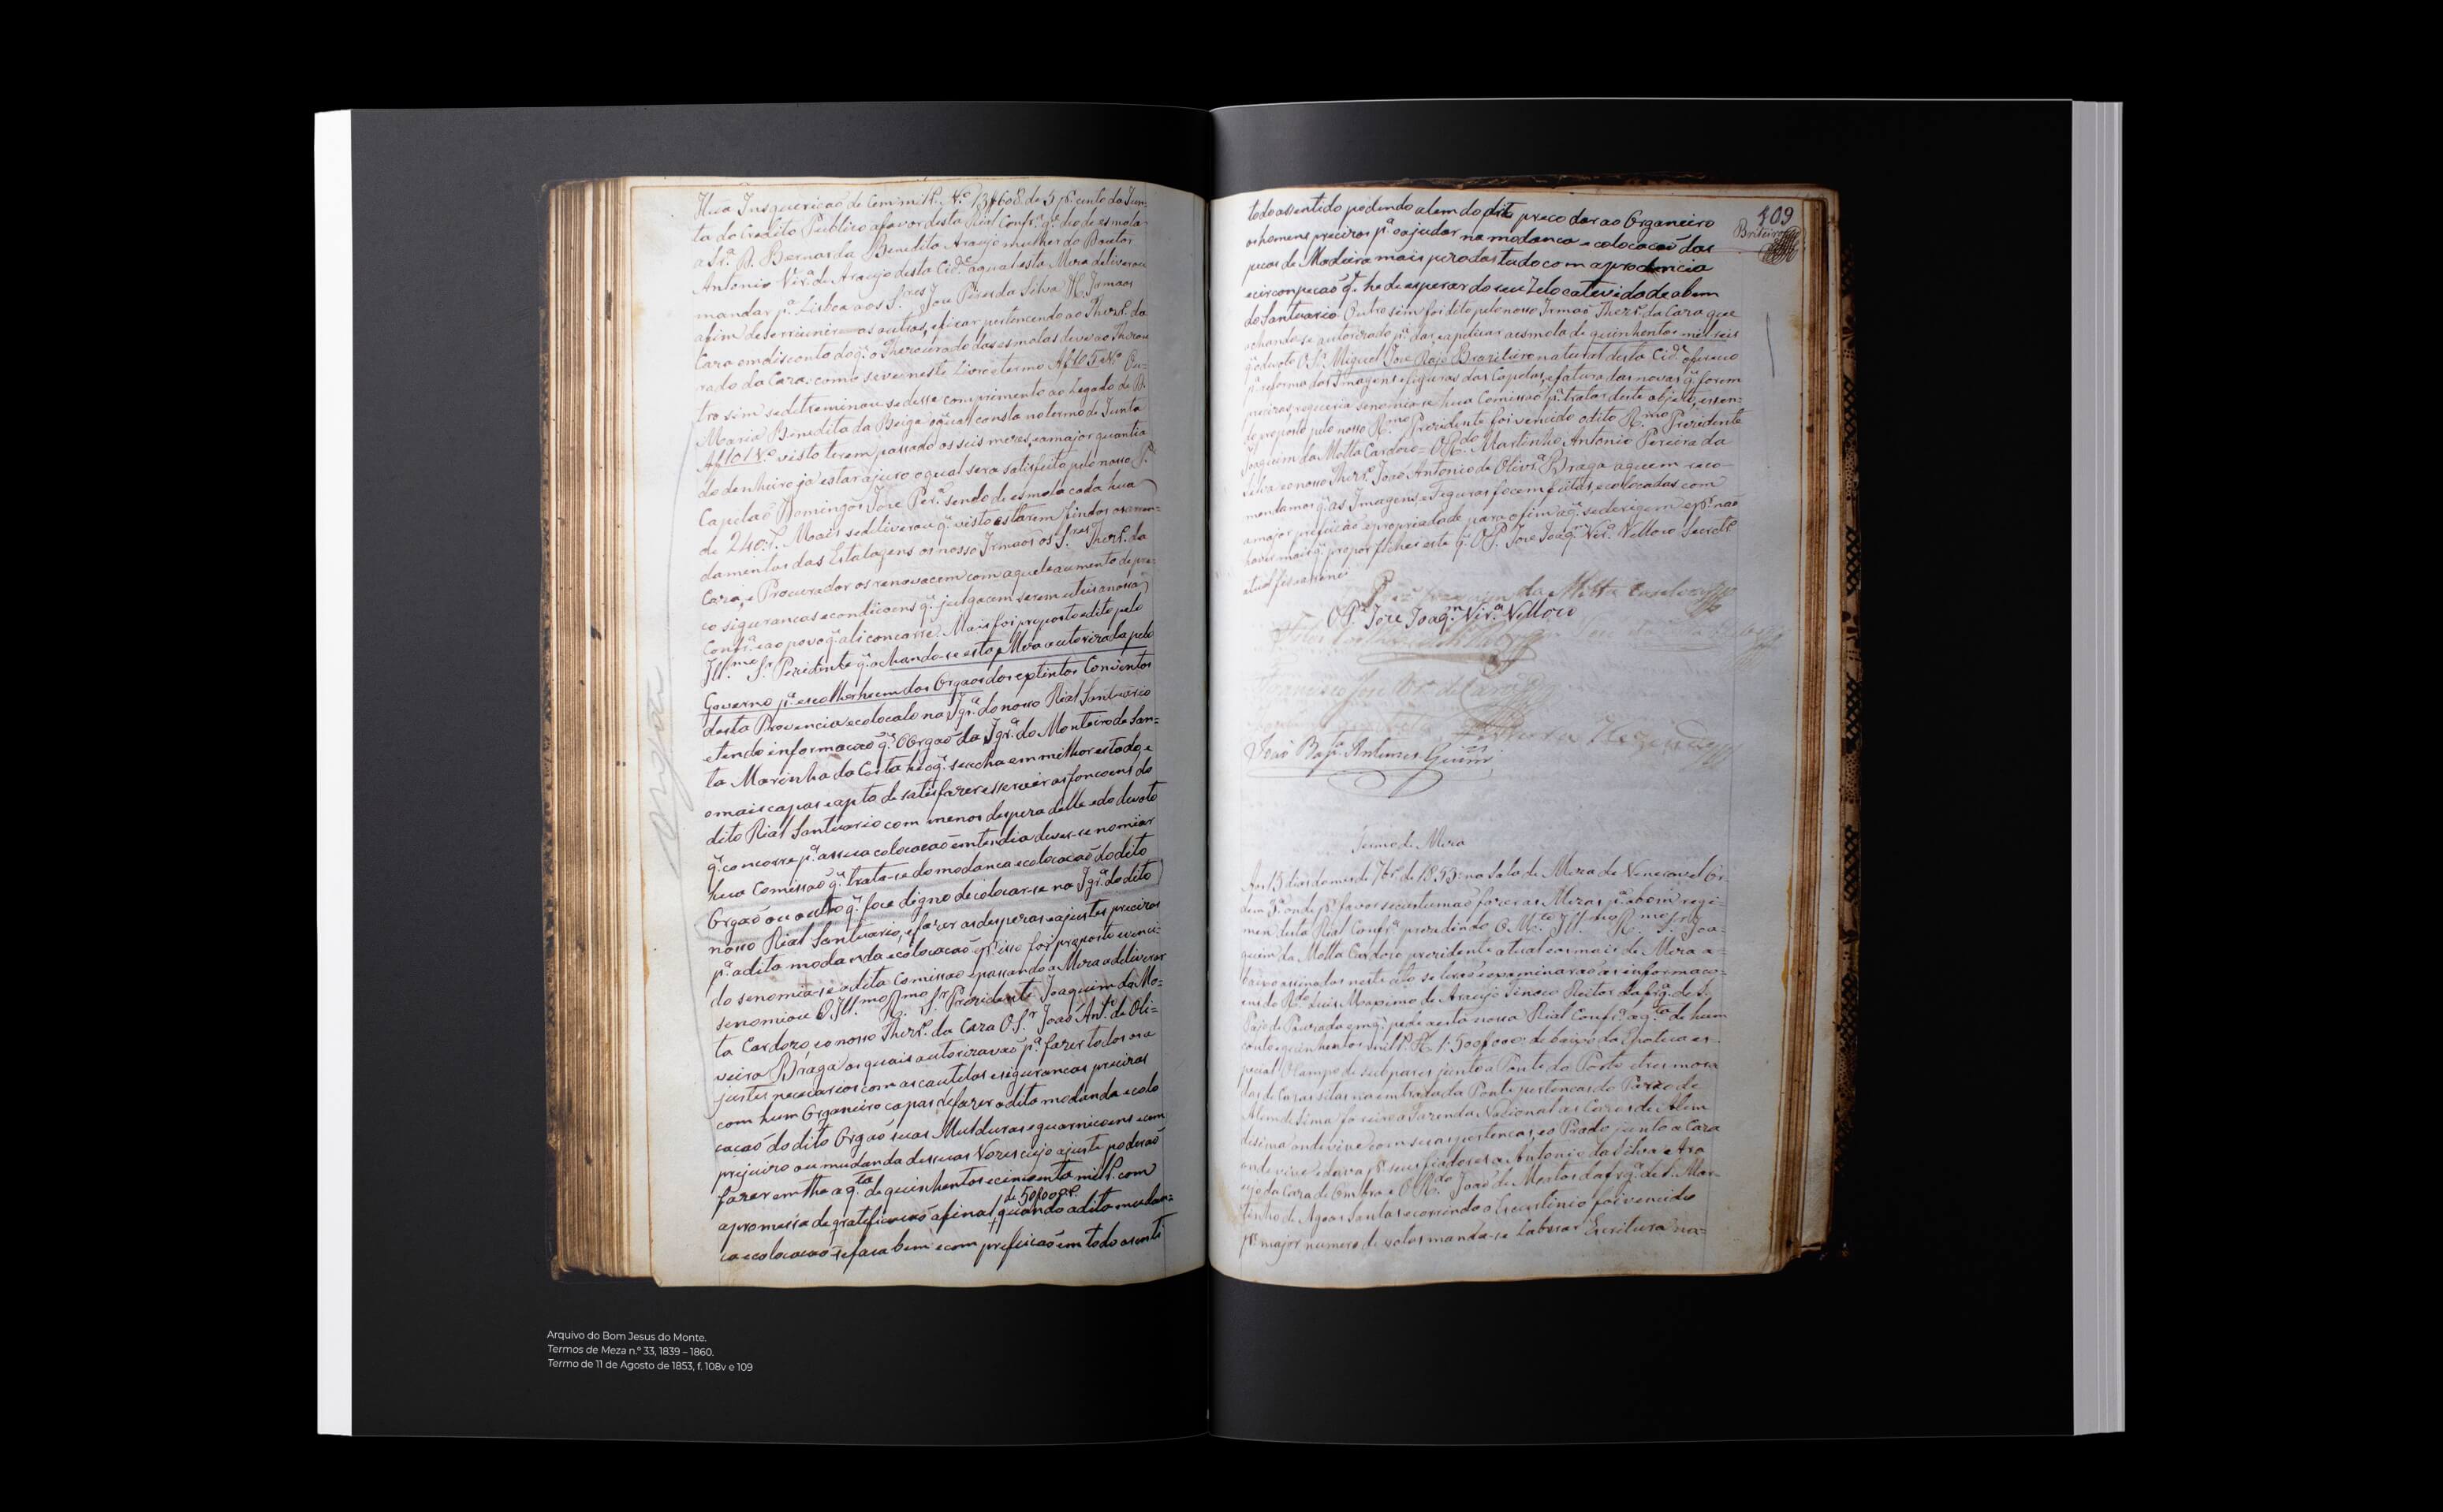 Hua Insquericaõ de Cem mil r.s N.º 134608 de 5 p.r cento da Jun-
ta do Credito Publico a favor desta Rial Confr.ª q.e deo de esmola
a Sr.ª D. Bernarda Benedita Araujo mulher do Doutor
Antonio Vir.ª de Araujo desta Cid.e a qual esta Meza deliverou
mandar p.ª Lisboa aos S.res Jose Pires da Silva H. Irmaos
afim de se as outras, e ficar pertencendo ao Thezr.º da
Caza em disconto do q.e o Thezourado das esmolas deve ao Thezou
rado da Caza: como se ve neste Livro e termo Af 105 Vº Ou-
tro sim se detreminou se desse comprimento ao Legado de D.
Maria Benedita da Beiga o qual consta no termo de Junta
Af 101 Vº visto terem passado os seis mezes, e a major quantia
do denheiro ja estar a juro o qual sera satisfeito pelo nosso P.e
Capelaõ Domingos Jose Per.ª sendo de esmola cada hua
de 240 r.s Mais se deliverou q.e visto estarem findos os arren-
damentos das Estalagens os nosso Irmaos os S.res Thezr.º da
Caza, e Procurador os renovacem com aquele aumento de pre-
co siguransas e condicoens q.e julgacem serem uteis a nossa
Confr.ª e ao povo q.e ali concorre. Mais foi proposto e dito pelo
Ill.mo Sr. Perzidente q.e achando-se esta Meza autorizada pelo
Governo p.ª escolher hum dos Orgaos dos extintos Conventos
desta Provencia e colocalo na Igr.ª do nosso Rial Santuario
e tendo informacaõ q.e o Orgaõ da Igr.ª do Monteiro de San-
ta Marinha da Costa he o q.e se acha em milhor estado, e
o mais capas e apto de satisfazer e serveir as foncoens do
dito Rial Santuario com menos despeza delle e do devoto
q.e concorre p.ª assua colocacaõ entendia dever-se nomiar
hua Comissaõ q.e trata-se do modanca e colocacaõ do dito
Orgaõ ou outro q.e foce digno de colocar-se na Igr.ª do dito
nosso Rial Santuario, e fazer as despezas e ajustes precizos
p.ª a dita modanda e colocacaõ p.r isso foi proposto e venci-
do se nomia-se a dita Comissaõ e passando a Meza a deliverar
se nomiou O Ill.mo R.mo Sr Prezidente Joaquim da Mo-
ta Cardozo, e o nosso Thezr.º da Caza O S.r Joaõ Ant.º de Oli-
veira Braga os quais autorizavaõ p.ª fazer todos os a
justes nececarios com as cautelas e sigurancas precizas
com hum Organeiro capas de fazer a dita modanda e colo
cacaõ do dito Orgaõ suas Mulduras e guarnicoens e com
prejuizo ou mudanda de suas Vozes cujo ajuste poderaõ
fazer em the a q.ta de quinhentos e cincoenta mil r.s com
de 50$000 r.s
a promessa de gratificacaõ afinal quando a dita mudan-
ca e colocacaõ se faca bem e com prefeicaõ em todo o senti
Orgão
109
todo o sentido podendo alem do dito preco dar ao Organeiro
os homens precizos p.ª o ajudar na modanca e colocacaõ das
pecas de Madeira mais pezadas tudo com a prodencia
e circonspecaõ q.e he de esperar do seu Zelo e atevidade a bem
do Santuario. Outro sim foi dito pelo nosso Irmaõ Thezr.º da Caza que
achando-se autorizado p.ª dar e aplicar a esmola de quinhentos mil reis
q.e devoto O Sr. Miguel Jose Raio Brazileiro natural desta Cid.e ofereceo
p.ª reforma das Imagens e figuras das Capelas, e fatura das novas q.e forem
precizas, requeria se nomia-se hua Comissaõ p.ª tratar deste objeto, e sen-
do proposto pelo nosso R.mo Prezidente foi vencido o dito R.mo Prezidente
Joaquim da Motta Cardozo = O R.do Martinho Antonio Pereira da
Silva e o nosso Thezr.º Joaõ Antonio de Olivr.ª Braga a quem reco-
mendamos q.e as Imagens e Figuras focem feitas, e colocadas com
a major prefeicaõ e propriedade para o fim a q.e se derigem e p.r naõ
haver mais q.e propor fiz este q.e O P. Jose Joaq.m Vir.ª Velloso Secret.º
atual fis e asinei
Prez.e Joaquim da Motta Cardozo
O P.e Jose Joaq.m Vir.ª Velloso
Francisco Jose
Joaõ Bap.ta Antunes Guim.es
Termo de Meza
Aos 13 dias do mes de 7br.º de 1853: na Sala de Meza da Veneravel Or-
dem 3.ª onde p.r favor se custumaõ fazer as Mezas p.ª abom regi-
men desta Rial Confr.ª prezedindo O M.to Ill.mo R.mo Sr. Joa-
quim da Motta Cardozo prezidente atual e os mais de Meza a-
baixo assinados neste ato se leraõ e expeminaraõ as informaco-
ens do R.do Luis Maximo de Araujo Reitor da frg.ª de S.
Pajo de Pouzada em q.e pede a esta nossa Rial Confr.ª a q.ta de hum
conto e quinhentos mil r.s 1:500$000: de baixo da Epoteca es-
pecial O Campo de junto a Ponte do Porto e tres mora
das de Cazas sitas na entrada da Ponte pertencas do Prazo de
Alem de Sima foreiro a Fazenda Nacional as Cazas de Alem
desima onde vive com suas pertencas, e o Prado junto a Caza
onde vive e dava p.r seus fiadores a Antonio da Silva e Ara
ujo da Caza de Ombra e O R.do Joaõ de Mattos da frg.ª de S. Mar-
tinho de Agoas Santas e correndo o Escrutinio foi vencido
p.r major numero de votos manda-se Labrar Escritura na-
Arquivo do Bom Jesus do Monte.
Termos de Meza n.º 33, 1839 – 1860.
Termo de 11 de Agosto de 1853, f. 108v e 109